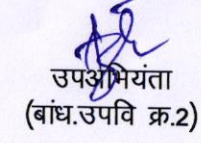 उपअभियंता
(बांध.उपवि क्र.2)